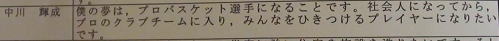 中川 輝成 僕の夢は，プロバスケット選手になることです。社会人になってから，
プロのクラブチームに入り，みんなをひきつけるプレイヤーになりたい
です。